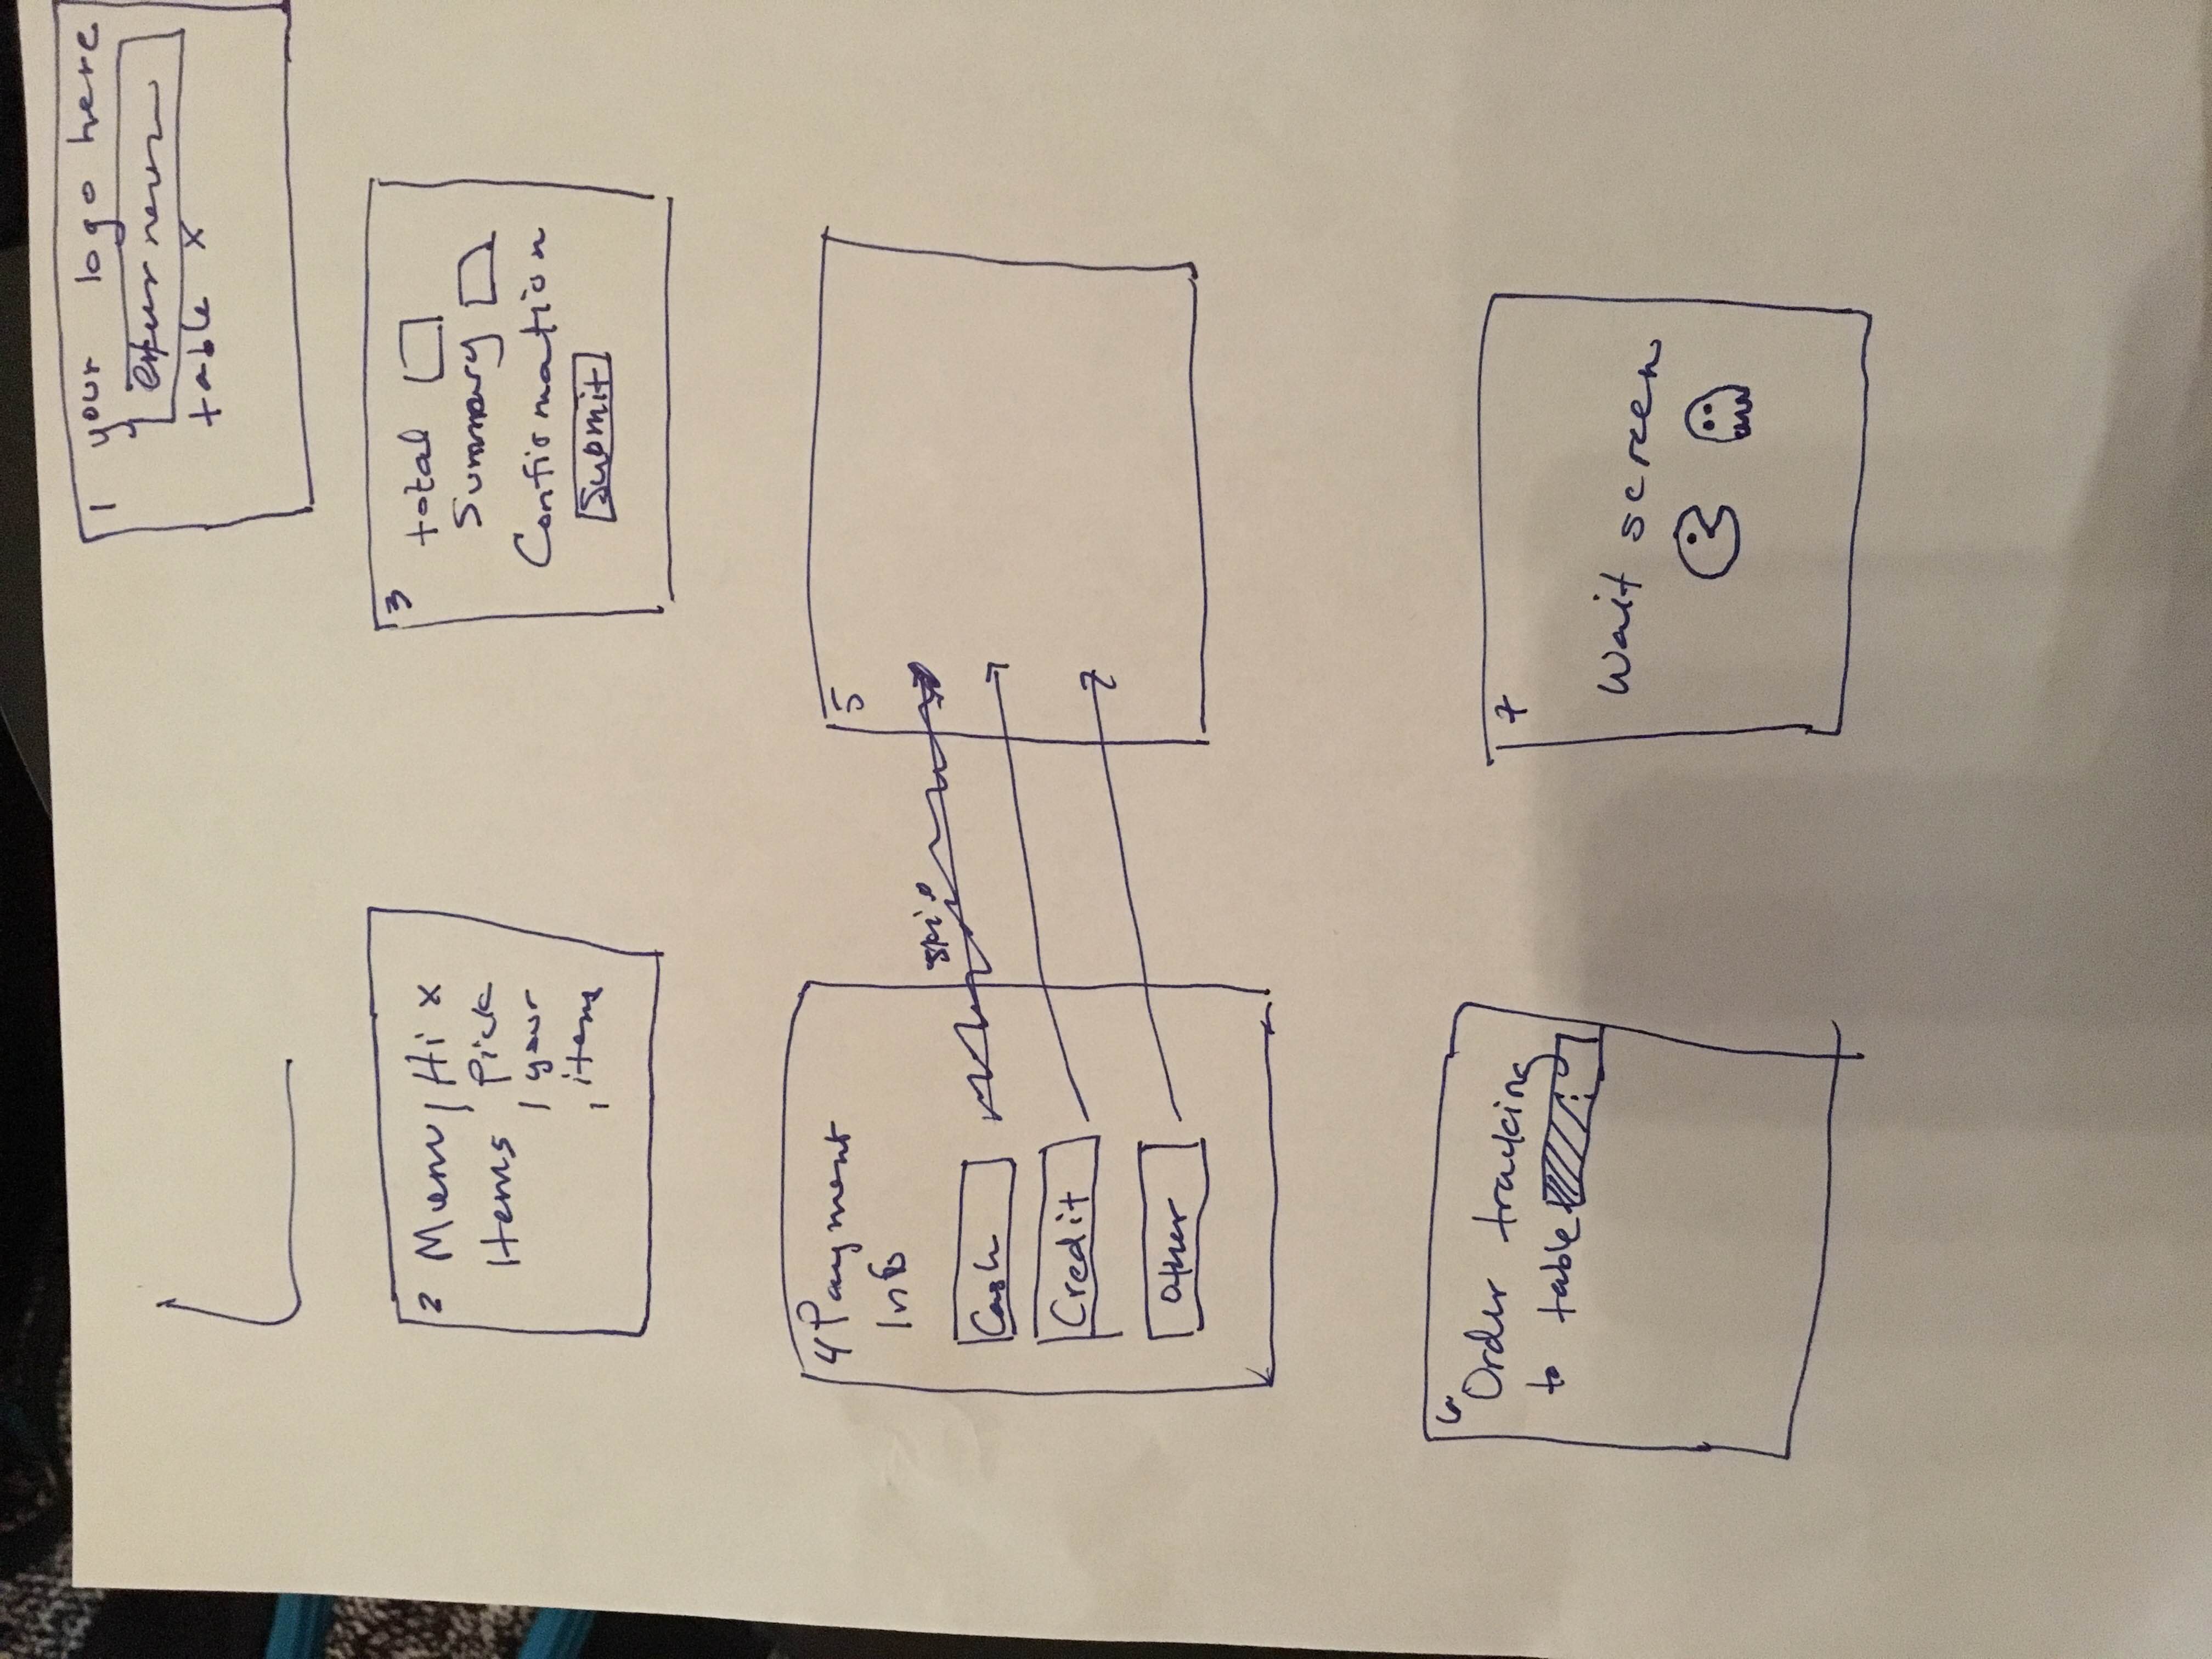 1 your logo here
enter name
table x
2 Menu Hi x
Items Pick
your
items
3
total
Summary
Confirmation
Submit
4 Payment
Info
Cash
Credit
Other
skip
5
6
Order tracking
to table
7
Wait screen